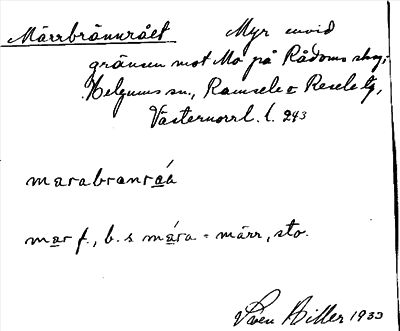 Märrbrännrået Myr invid
gränsen mot Mo på Rådoms skog,
Helgums sn, Ramsele o Resele tg,
Västernorrl. l. 243
marabranráa
mar f., b. s mára = märr, sto.
Sven Biller 1933